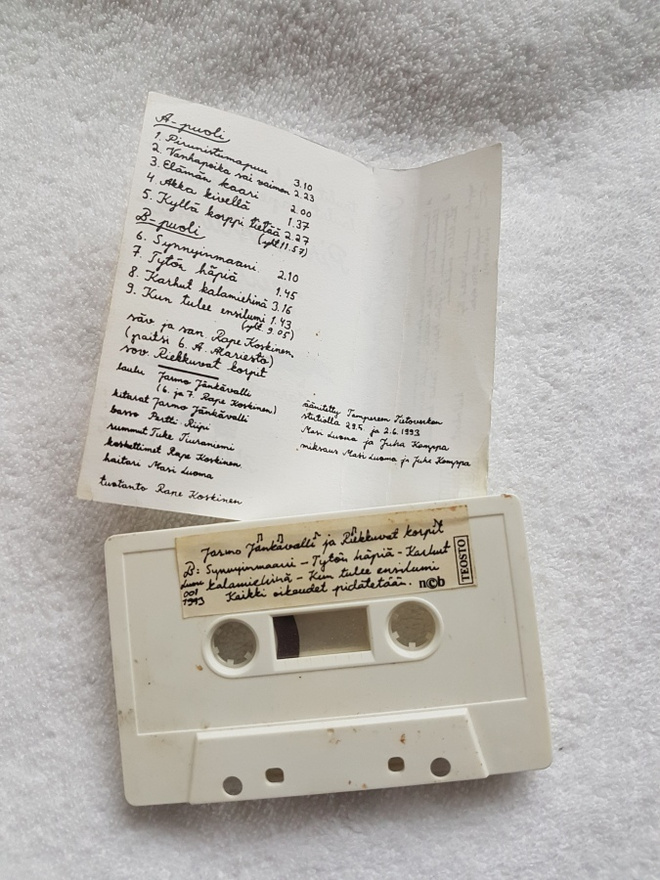 A-puoli
1. Pirunistumapuu 3.10
2. Vanhapoika sai vaimon 2.23
3. Elämän kaari 2.00
4. Akka kivellä 1.37
5. Kyllä korppi tietää 2.27
(yht 11.57)
B-puoli
6. Synnyinmaani 2.10
7. Tytön häpiä 1.45
8. Karhut kalamiehinä 3.16
9. Kun tulee ensilumi 1.43
(yht. 9.05)
säv ja san Rape Koskinen
(paitsi 6. A. Alariesto)
sov. Riekkuvat korpit
laulu Jarmo Jänkävalli
(6. ja 7. Rape Koskinen)
kitarat Jarmo Jänkävalli
basso Pertti Riipi
rummut Tuke Tuuraniemi
koskettimet Rape Koskinen
haitari Masi Luoma
tuotanto Rape Koskinen
äänitetty Tampereen Tietoverkon
studiolla 29.5. ja 2.6.1993
Masi Luoma ja Juha Kamppa
miksaus Masi Luoma ja Juha Kamppa
Jarmo Jänkävalli ja Riekkuvat korpit
B: Synnyinmaani – Tytön häpiä – Karhut
kalamiehinä – Kun tulee ensilumi
Kaikki oikeudet pidätetään. n©b
Luoma
001
1993
TEOSTO